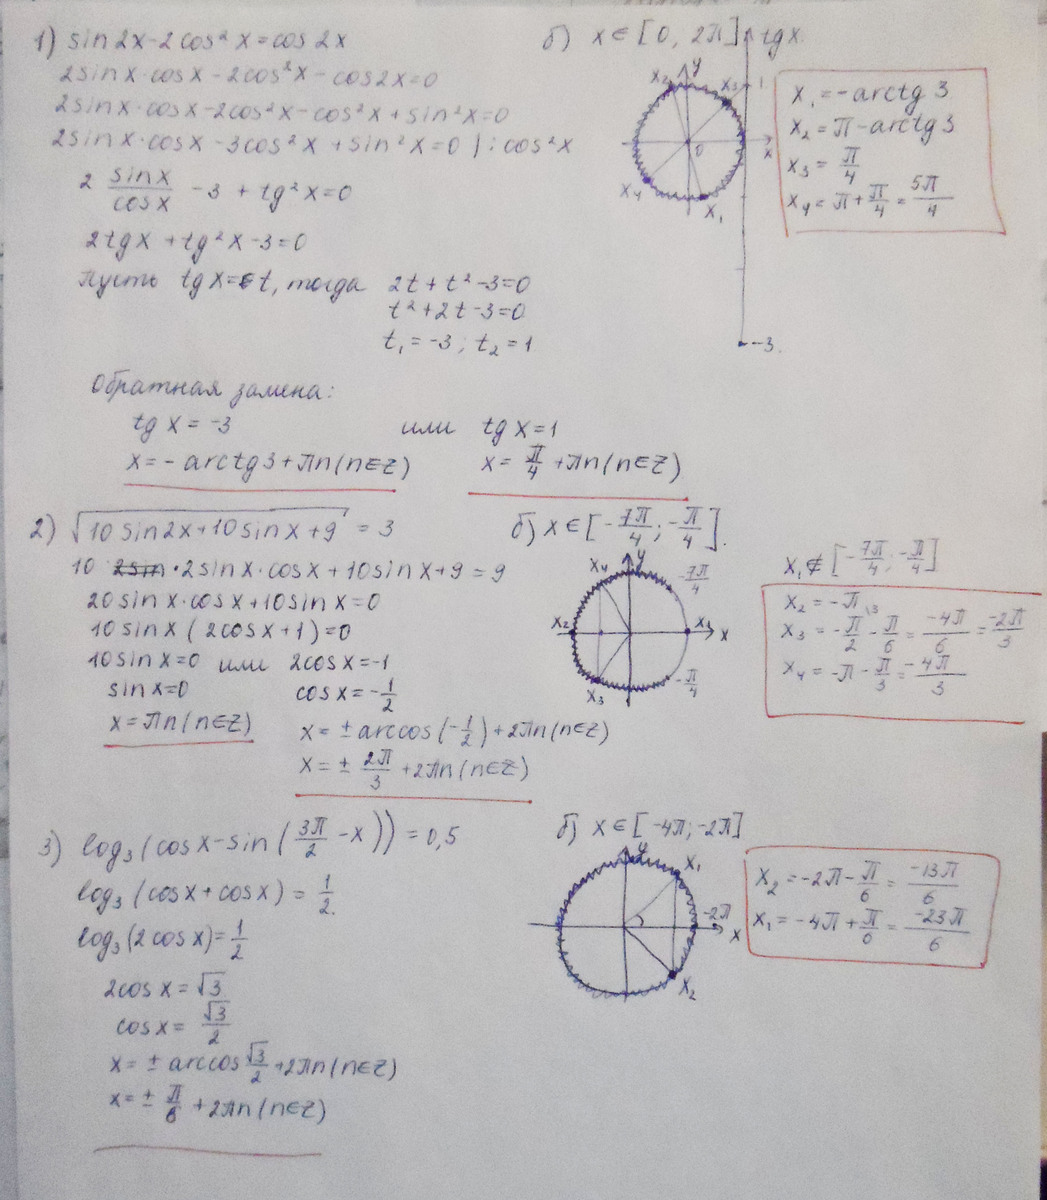 1) sin 2x - 2cos² x = cos 2x
2sin x·cos x - 2cos²x - cos2x = 0
2sin x·cos x - 2cos²x - cos²x + sin²x = 0
2sin x·cos x - 3cos²x + sin²x = 0 | : cos²x
2 sin x / cos x - 3 + tg²x = 0
2tg x + tg²x - 3 = 0
Пусть tg x = t, тогда 2t + t² - 3 = 0
t² + 2t - 3 = 0
t₁ = -3; t₂ = 1
Обратная замена:
tg x = -3 или tg x = 1
x = - arctg 3 + πn (n∈Z) x = π/4 + πn (n∈Z)
б) x ∈ [0, 2π] tg x
y
x₂ x₃ 1
0 x
x₄ x₁
-3.
x₁ = -arctg 3
x₂ = π - arctg 3
x₃ = π/4
x₄ = π + π/4 = 5π/4
2) √(10 sin 2x + 10 sin x + 9) = 3
10 · 2sin x·cos x + 10sin x + 9 = 9
20sin x·cos x + 10sin x = 0
10sin x (2cos x + 1) = 0
10sin x = 0 или 2cos x = -1
sin x = 0 cos x = -1/2
x = πn (n∈Z) x = ± arccos(-1/2) + 2πn (n∈Z)
x = ± 2π/3 + 2πn (n∈Z)
б) x ∈ [-7π/4; -π/4].
y
x₄ -7π/4
x₂ x₁ x
x₃ -π/4
x₁ ∉ [-7π/4; -π/4]
x₂ = -π
x₃ = -π/2 - π/6 = -4π/6 = -2π/3
x₄ = -π - π/3 = -4π/3
3) log₃(cos x - sin(3π/2 - x)) = 0,5
log₃(cos x + cos x) = 1/2.
log₃(2cos x) = 1/2
2cos x = √3
cos x = √3/2
x = ± arccos √3/2 + 2πn (n∈Z)
x = ± π/6 + 2πn (n∈Z)
б) x ∈ [-4π; -2π]
y
x₁
-2π x
x₂
x₂ = -2π - π/6 = -13π/6
x₁ = -4π + π/6 = -23π/6